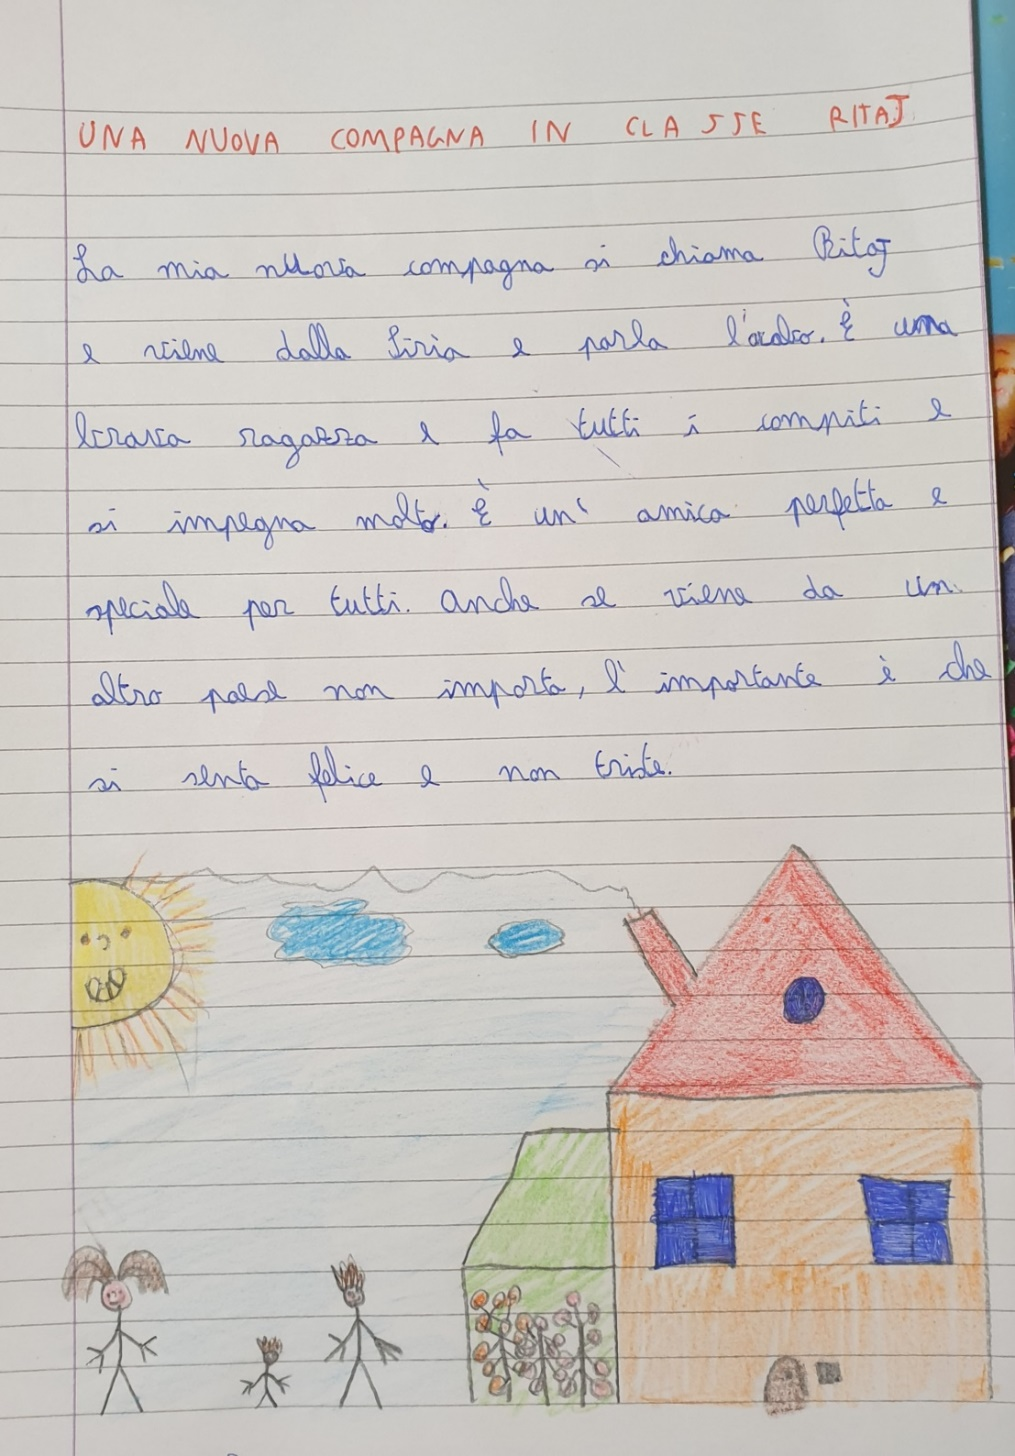 UNA NUOVA COMPAGNA IN CLASSE RITAJ
La mia nuova compagna si chiama Ritaj
e viene dalla Siria e parla l'arabo. È una
brava ragazza e fa tutti i compiti e
si impegna molto. È un' amica perfetta e
speciale per tutti. Anche se viene da un
altro paese non importa, l' importante è che
si senta felice e non triste.